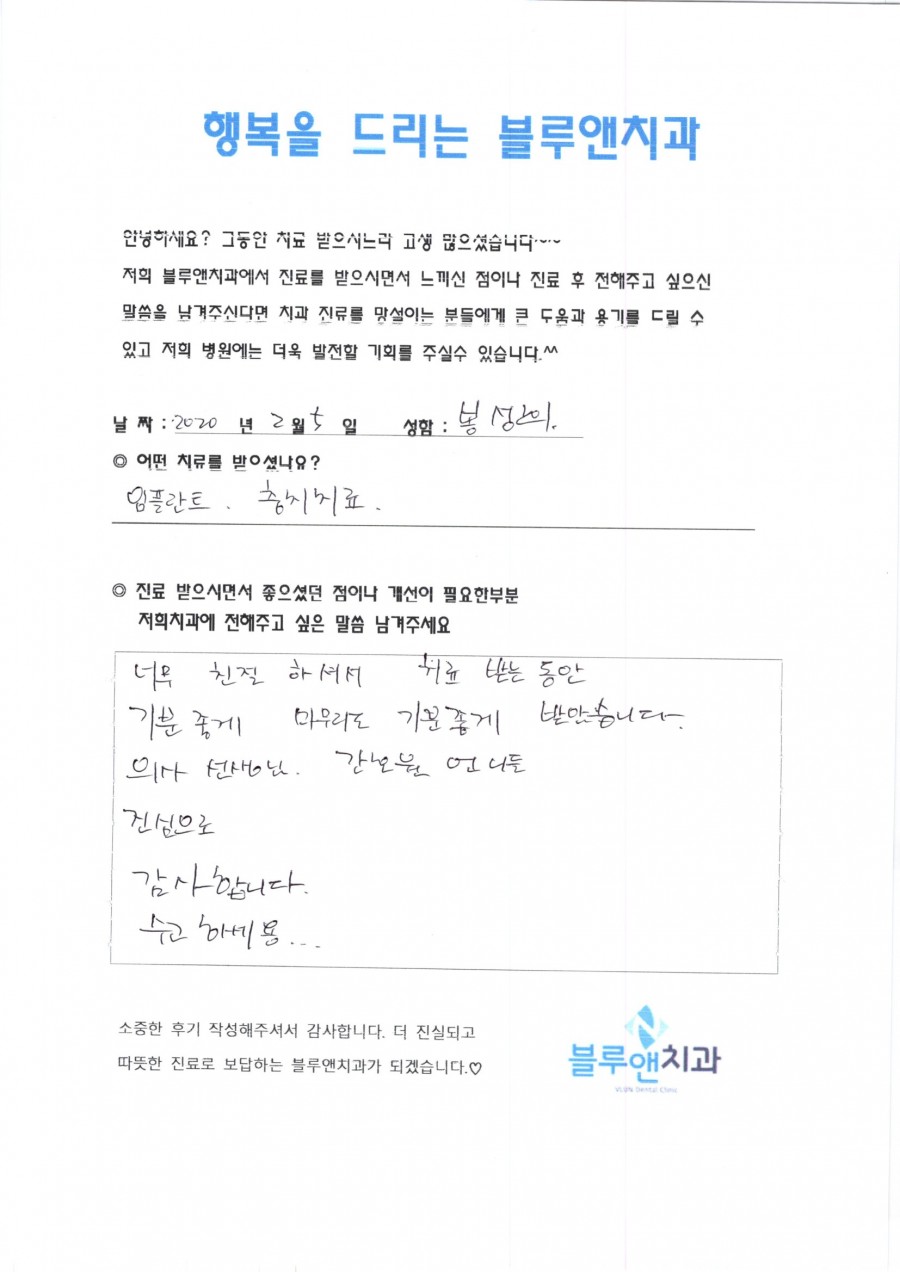 행복을 드리는 블루앤치과
안녕하세요? 그동안 치료 받으시느라 고생 많으셨습니다~~
저희 블루앤치과에서 진료를 받으시면서 느끼신 점이나 진료 후 전해주고 싶으신
말씀을 남겨주신다면 치과 진료를 망설이는 분들에게 큰 도움과 용기를 드릴 수
있고 저희 병원에는 더욱 발전할 기회를 주실수 있습니다.^^
날 짜 : 2020 년 2 월 5 일 성함 : 봉
◎ 어떤 치료를 받으셨나요?
임플란트. 충치치료.
◎ 진료 받으시면서 좋으셨던 점이나 개선이 필요한부분
저희치과에 전해주고 싶은 말씀 남겨주세요
너무 친절 하셔서 치료 받는 동안
기분 좋게 마무리도 기분좋게 받았습니다.
의사 선생님. 간호원 언니들
진심으로
감사합니다.
수고 하세용...
소중한 후기 작성해주셔서 감사합니다. 더 진실되고
따뜻한 진료로 보답하는 블루앤치과가 되겠습니다.♡
블루앤치과
Dental Clinic